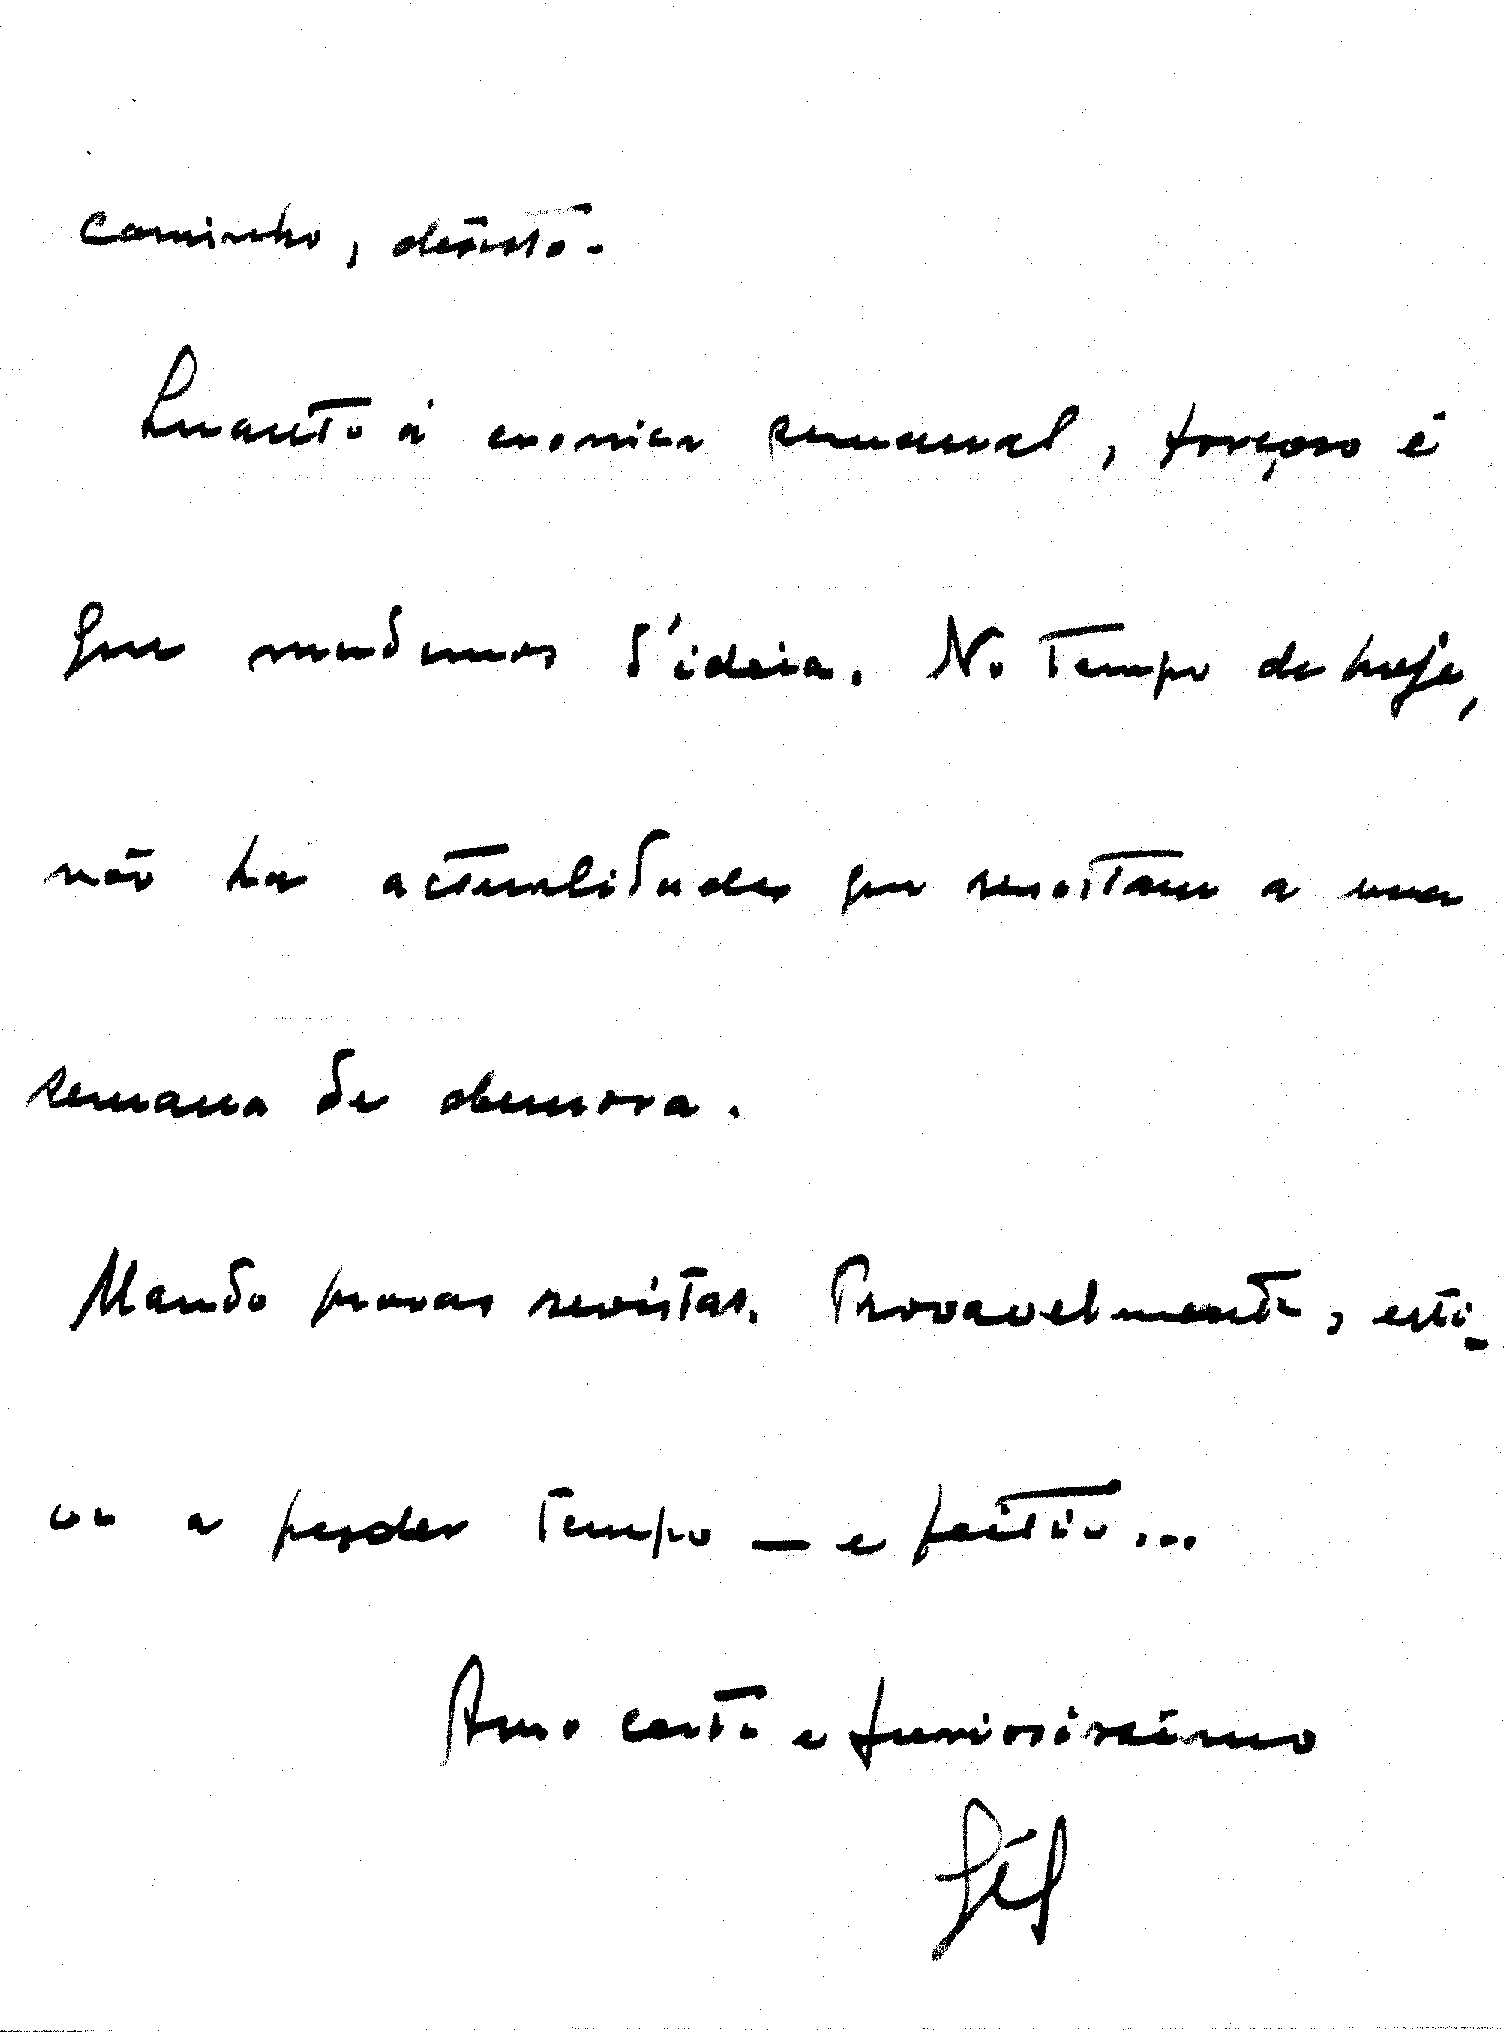 caminho, desisto.
Quanto á cronica semanal, forçoso é
que mudemos d'ideia. No tempo de hoje,
não ha actualidades que resistam a uma
semana de demora.
Mando provas revistas. Provavelmente, esti-
ou a perder tempo — e feitio...
Amo certo e furiosissimo